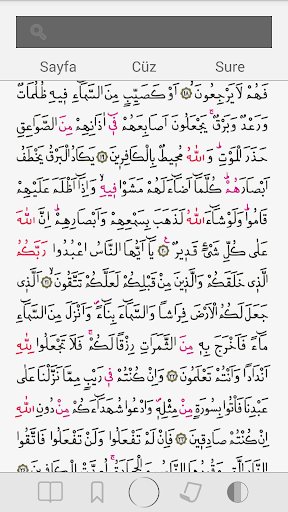 Sayfa Cüz Sure
فَهُمْ لَا يَرْجِعُونَۙ ﴿١٨﴾ اَوْ كَصَيِّبٍ مِنَ السَّمَٓاءِ ف۪يهِ ظُلُمَاتٌ
وَرَعْدٌ وَبَرْقٌۚ يَجْعَلُونَ اَصَابِعَهُمْ ف۪ٓي اٰذَانِهِمْ مِنَ الصَّوَاعِقِ
حَذَرَ الْمَوْتِۜ وَاللّٰهُ مُح۪يطٌ بِالْكَافِر۪ينَ ﴿١٩﴾ يَكَادُ الْبَرْقُ يَخْطَفُ
اَبْصَارَهُمْۜ كُلَّمَٓا اَضَٓاءَ لَهُمْ مَشَوْا ف۪يهِۙ وَاِذَٓا اَظْلَمَ عَلَيْهِمْ
قَامُواۜ وَلَوْ شَٓاءَ اللّٰهُ لَذَهَبَ بِسَمْعِهِمْ وَاَبْصَارِهِمْۜ اِنَّ اللّٰهَ
عَلٰى كُلِّ شَيْءٍ قَد۪يرٌ۟ ﴿٢٠﴾ يَٓا اَيُّهَا النَّاسُ اعْبُدُوا رَبَّكُمُ
الَّذ۪ي خَلَقَكُمْ وَالَّذ۪ينَ مِنْ قَبْلِكُمْ لَعَلَّكُمْ تَتَّقُونَۙ ﴿٢١﴾ اَلَّذ۪ي
جَعَلَ لَكُمُ الْاَرْضَ فِرَاشًا وَالسَّمَٓاءَ بِنَٓاءًۖ وَاَنْزَلَ مِنَ السَّمَٓاءِ
مَٓاءً فَاَخْرَجَ بِه۪ مِنَ الثَّمَرَاتِ رِزْقًا لَكُمْۚ فَلَا تَجْعَلُوا لِلّٰهِ
اَنْدَادًا وَاَنْتُمْ تَعْلَمُونَ ﴿٢٢﴾ وَاِنْ كُنْتُمْ ف۪ي رَيْبٍ مِمَّا نَزَّلْنَا عَلٰى
عَبْدِنَا فَأْتُوا بِسُورَةٍ مِنْ مِثْلِه۪ۖ وَادْعُوا شُهَدَٓاءَكُمْ مِنْ دُونِ اللّٰهِ
اِنْ كُنْتُمْ صَادِق۪ينَ ﴿٢٣﴾ فَاِنْ لَمْ تَفْعَلُوا وَلَنْ تَفْعَلُوا فَاتَّقُوا